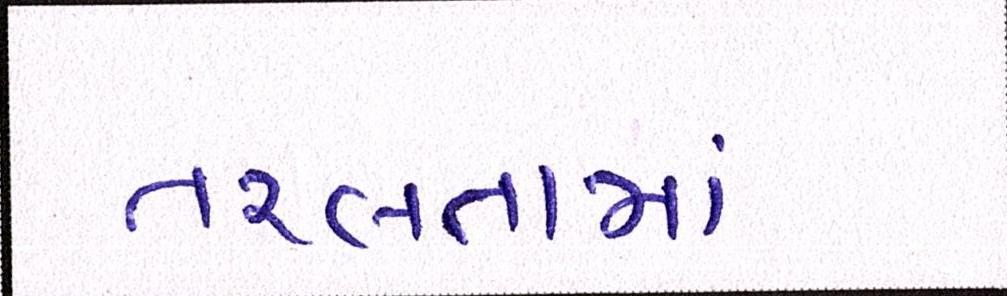 તરલતામાં